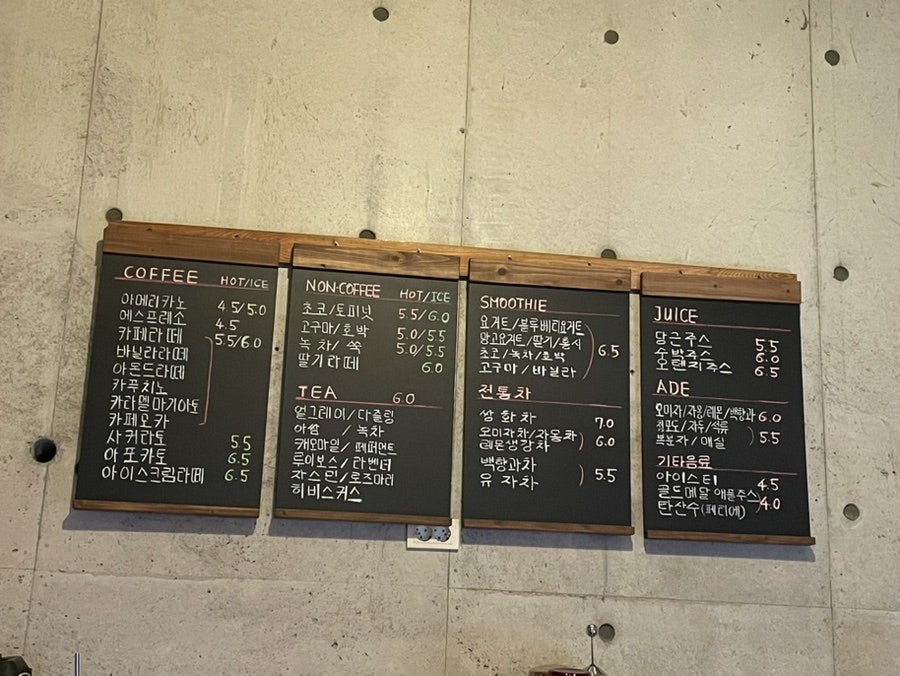 COFFEE HOT/ICE
아메리카노 4.5/5.0
에스프레소 4.5
카페라떼 5.5/6.0
바닐라라떼
아몬드라떼
카푸치노
카라멜마기아토
카페모카
사커라토 5.5
아포카토 6.5
아이스크림라떼 6.5
NON-COFFEE HOT/ICE
초코/토피넛 5.5/6.0
고구마/호박 5.0/5.5
녹차/쑥 5.0/5.5
딸기라떼 6.0
TEA 6.0
얼그레이/다즐링
아쌈 / 녹차
캐모마일/페퍼민트
루이보스/라벤더
자스민/로즈마리
히비스커스
SMOOTHIE
요거트/블루베리요거트
망고요거트/딸기/홍시
초코/녹차/호박 6.5
고구마/바닐라
전통차
쌍화차 7.0
오미자차/자몽차 6.0
레몬생강차
백향과차 5.5
유자차
JUICE
당근주스 5.5
수박주스 6.0
오렌지주스 6.5
ADE
오미자/자몽/레몬/백향과 6.0
청포도/자두/석류 5.5
복분자/매실
기타음료
아이스티 4.5
골드메달 애플주스 4.0
탄산수(페리에)